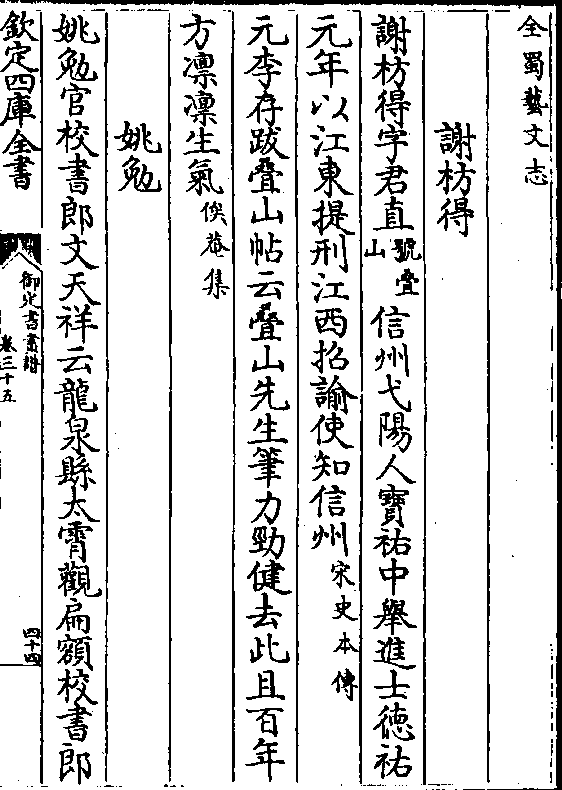 全蜀藝文志
謝枋得
謝枋得字君直號疊山信州弋陽人寶祐中舉進士德祐
元年以江東提刑江西招諭使知信州宋史本傳
元李存跋疊山帖云疊山先生筆力勁健去此且百年
方凛凛生氣俟菴集
姚勉
姚勉官校書郎文天祥云龍泉縣太霄觀扁額校書郎
欽定四庫全書
御定書畫譜
卷三十五
四十四